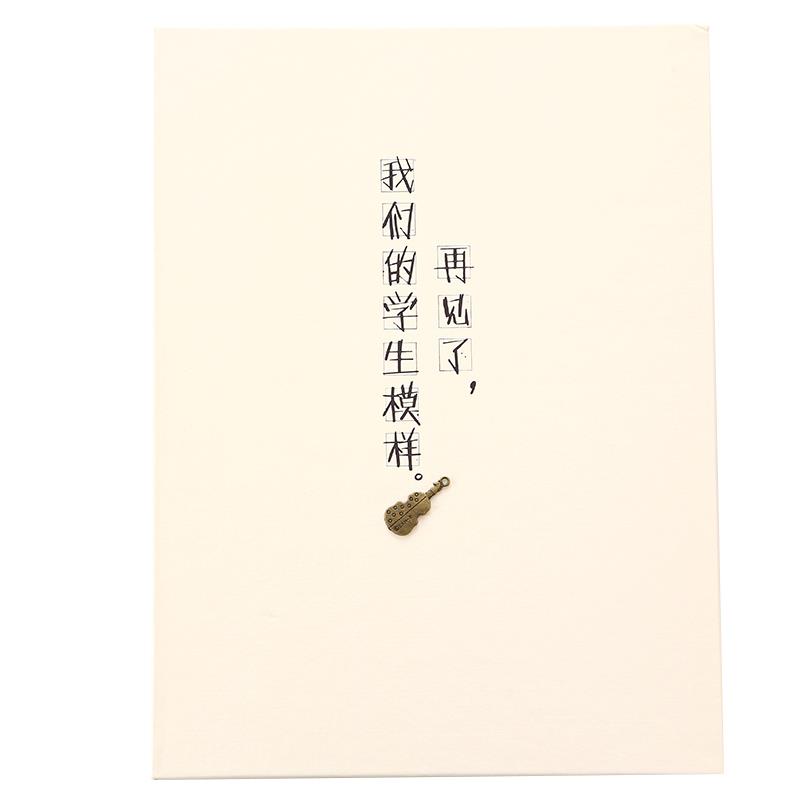 再见了，
我们的学生模样。